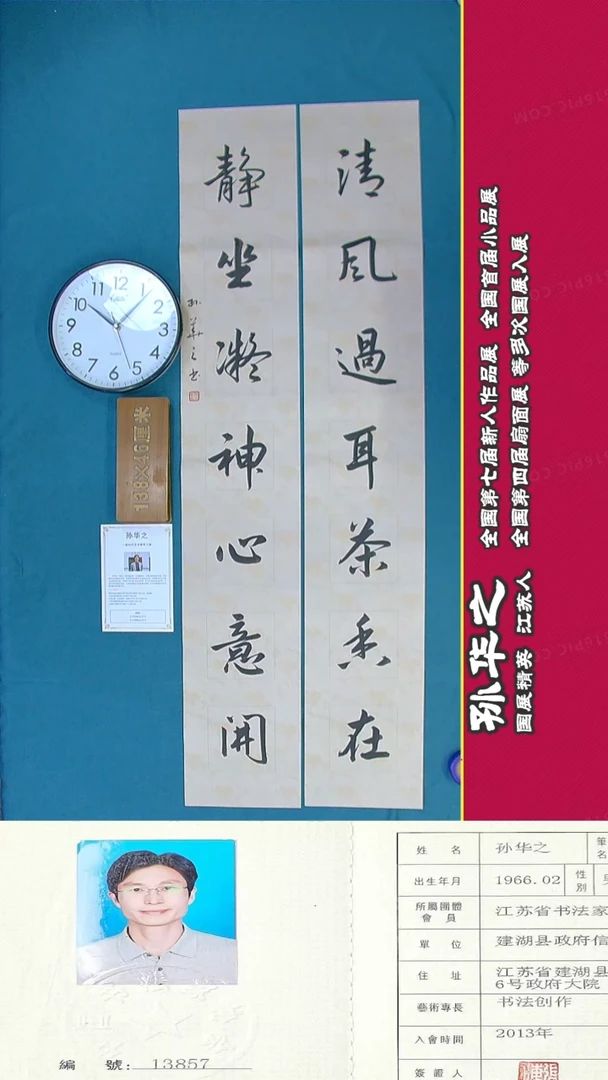 清风過耳茶香在
静坐凝神心意開
孙華之书
12
1
2
3
4
5
6
7
8
9
10
11
QUARTZ
138×46厘米
孙华之
孙华之
国展精英 江苏人
全国第七届新人作品展 全国首届小品展
全国第四届扇面展 等多次国展入展
编 號: 13857
姓 名 孙华之 筆名
出生年月 1966.02 性别
所屬團體會員 江苏省书法家
單 位 建湖县政府信
住 址 江苏省建湖县
6号政府大院
藝術專長 书法创作
入會時間 2013年
簽證人